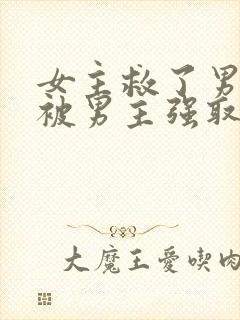 女主救了男
被男主强取
大魔王爱喫肉